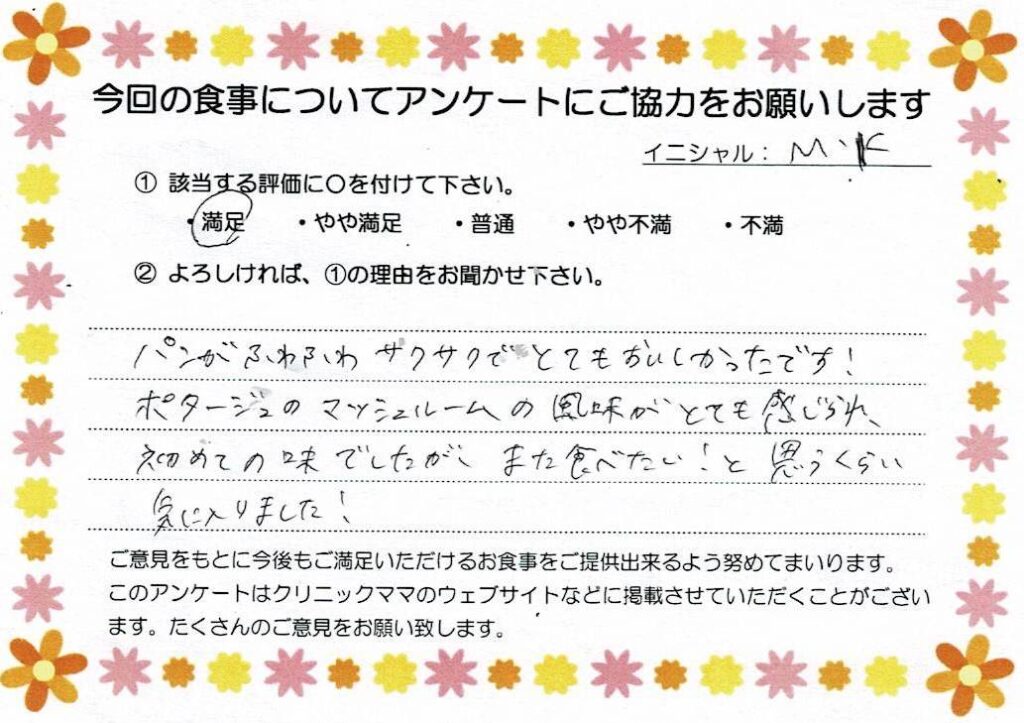 今回の食事についてアンケートにご協力をお願いします
イニシャル： M・K
① 該当する評価に〇を付けて下さい。
・満足 ・やや満足 ・普通 ・やや不満 ・不満
② よろしければ、①の理由をお聞かせ下さい。
パンがふわふわ ザクサクで とてもおいしかったです！
ポタージュの マッシュルームの 風味が とても 感じられ、
初めての 味 でしたが、 また 食べたい！と 思うくらい
気に入りました！
ご意見をもとに今後もご満足いただけるお食事をご提供出来るよう努めてまいります。
このアンケートはクリニックママのウェブサイトなどに掲載させていただくことがござい
ます。たくさんのご意見をお願い致します。